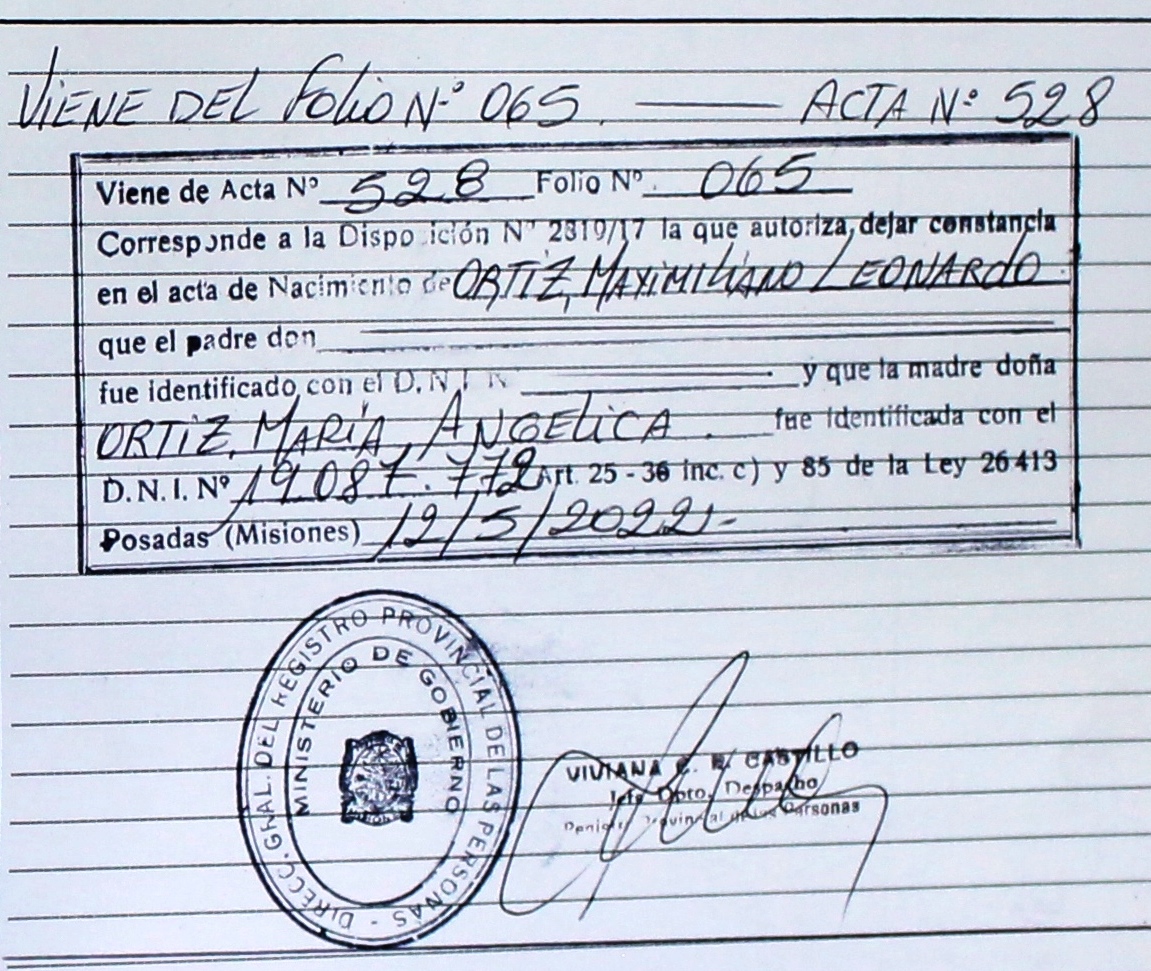 VIENE DEL FOLIO N° 065. ——— ACTA N° 528
Viene de Acta N° 528 Folio N°. 065
Corresponde a la Disposición N° 2819/17 la que autoriza, dejar constancia
en el acta de Nacimiento de ORTIZ, MAXIMILIANO LEONARDO
que el padre don
fue identificado con el D.N.I. N° y que la madre doña
ORTIZ, MARÍA, ANGELICA. fue identificada con el
D.N.I. N° 19.087.772 Art. 25 - 36 inc. c) y 85 de la Ley 26413
Posadas (Misiones) 12/5/2022.-
DIRECC. GRAL. DEL REGISTRO PROVINCIAL DE LAS PERSONAS -
MINISTERIO DE GOBIERNO
VIVIANA CASTILLO
Jefe Dpto. Despacho
Provincial de las Personas